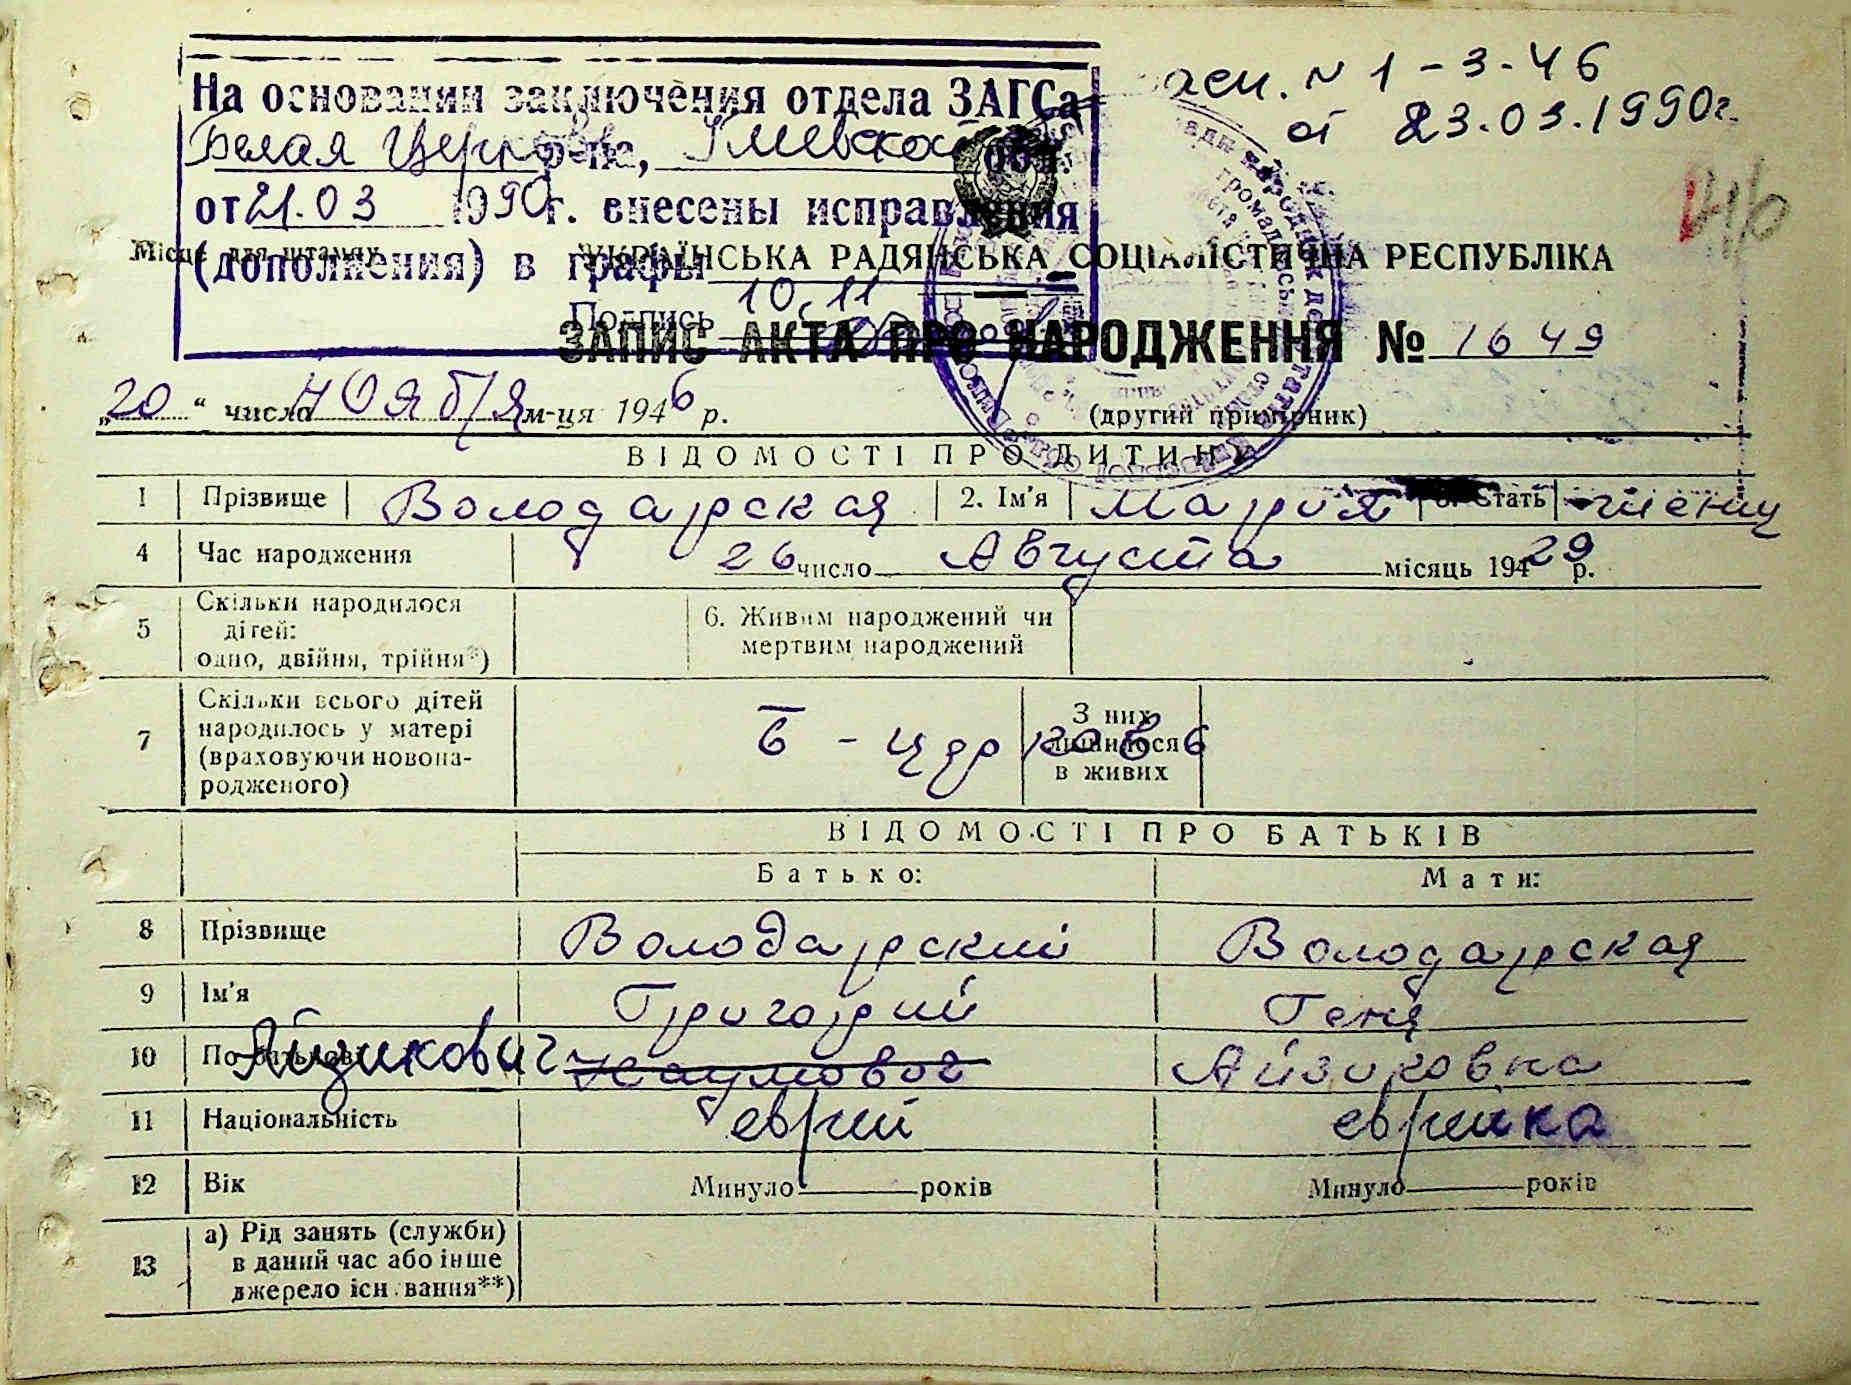 На основании заключения отдела ЗАГСа
Белая Церковь р-на, Киевской обл.
от 21.03 1990 г. внесены исправления
(дополнения) в графы 10, 11
Подпись
№ 1-3-46
от 23.03.1990г.
Місце для штампу
УКРАЇНСЬКА РАДЯНСЬКА СОЦІАЛІСТИЧНА РЕСПУБЛІКА
ЗАПИС АКТА ПРО НАРОДЖЕННЯ № 1649
„20“ числа ноября м-ця 1946 р. (другий примірник)
ВІДОМОСТІ ПРО ДИТИНУ
1 Прізвище Володарская 2. Ім'я Мария 3. Стать женщ
4 Час народження 26 число Августа місяць 194 29 р.
5 Скільки народилося дітей: одно, двійня, трійня*) 6. Живим народжений чи мертвим народжений
7 Скільки всього дітей народилось у матері (враховуючи новонародженого) З них лишилося в живих
ВІДОМОСТІ ПРО БАТЬКІВ
Батько: Мати:
8 Прізвище Володарский Володарская
9 Ім'я Григорий Геня
10 По батькові Айзикович Наумович Айзиковна
11 Національність еврей еврейка
12 Вік Минуло років Минуло років
13 а) Рід занять (служби)
в даний час або інше
джерело існування**)